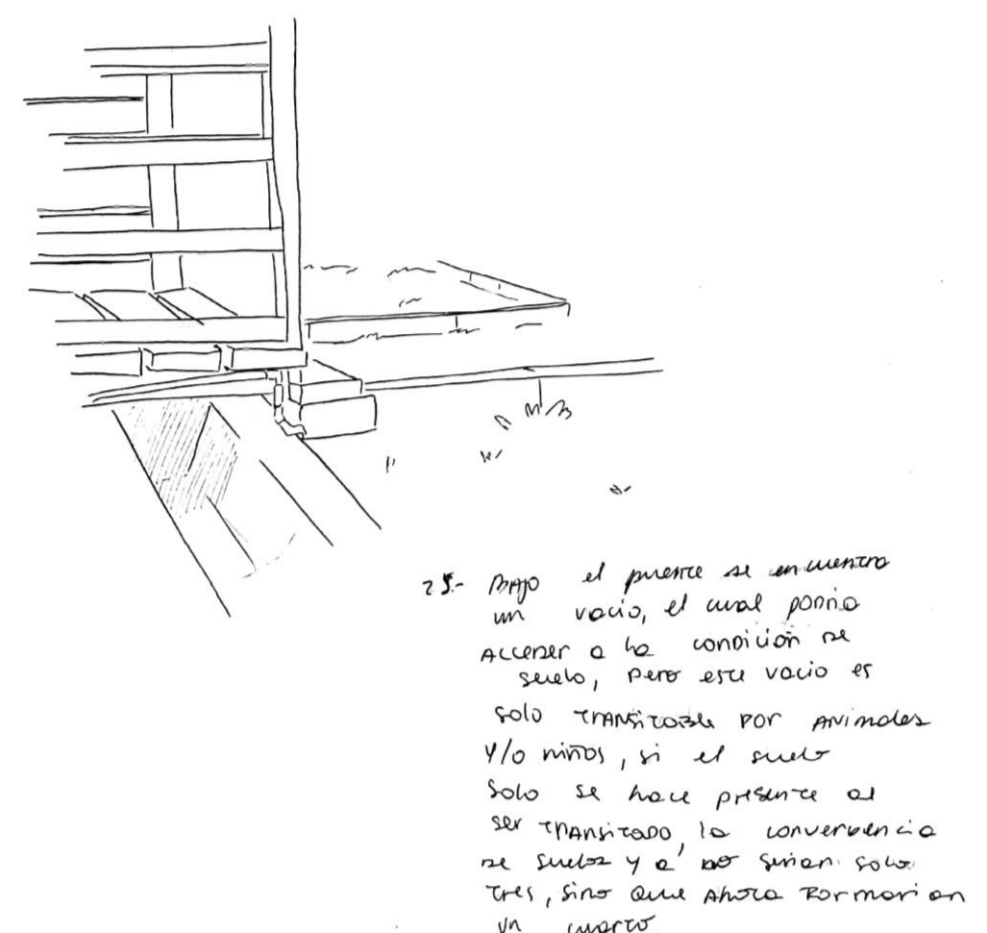 25.- BAJO el puente se encuentra
un vacio, el cual podria
ACCEDER a la condición DE
suelo, pero este vacio es
solo TRANSITABLE POR ANIMALES
Y/O niños, si el suelo
solo se hace presente al
ser TRANSITADO, la convergencia
de suelos ya no serian solo
tres, sino que AHORA FORMARIAN
un cuarto